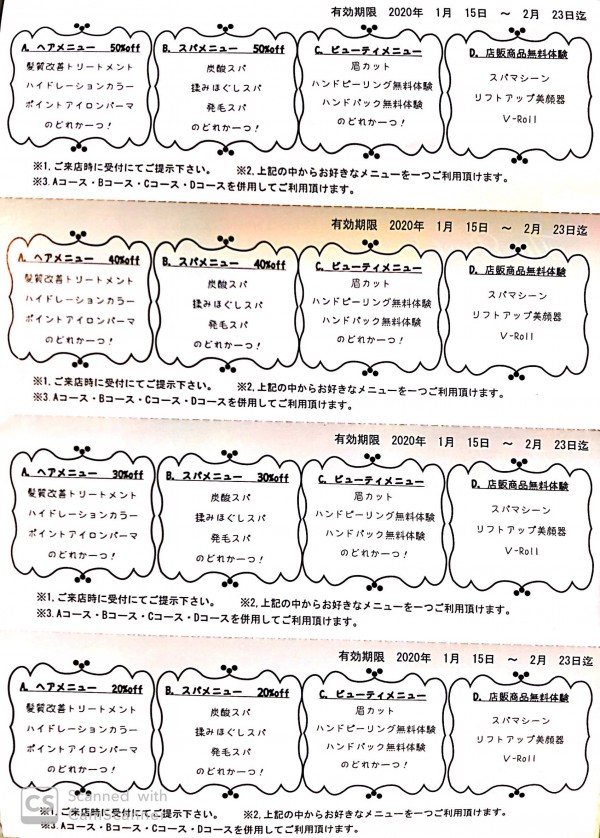 有効期限 2020年 1月 15日 ～ 2月 23日迄
A. ヘアメニュー 50%off
髪質改善トリートメント
ハイドレーションカラー
ポイントアイロンパーマ
のどれか一つ！
B. スパメニュー 50%off
炭酸スパ
揉みほぐしスパ
発毛スパ
のどれか一つ！
C. ビューティメニュー
眉カット
ハンドピーリング無料体験
ハンドパック無料体験
のどれか一つ！
D. 店販商品無料体験
スパマシーン
リフトアップ美顔器
V-Roll
※1.ご来店時に受付にてご提示下さい。 ※2.上記の中からお好きなメニューを一つご利用頂けます。
※3.Aコース・Bコース・Cコース・Dコースを併用してご利用頂けます。
有効期限 2020年 1月 15日 ～ 2月 23日迄
A. ヘアメニュー 40%off
髪質改善トリートメント
ハイドレーションカラー
ポイントアイロンパーマ
のどれか一つ！
B. スパメニュー 40%off
炭酸スパ
揉みほぐしスパ
発毛スパ
のどれか一つ！
C. ビューティメニュー
眉カット
ハンドピーリング無料体験
ハンドパック無料体験
のどれか一つ！
D. 店販商品無料体験
スパマシーン
リフトアップ美顔器
V-Roll
※1.ご来店時に受付にてご提示下さい。 ※2.上記の中からお好きなメニューを一つご利用頂けます。
※3.Aコース・Bコース・Cコース・Dコースを併用してご利用頂けます。
有効期限 2020年 1月 15日 ～ 2月 23日迄
A. ヘアメニュー 30%off
髪質改善トリートメント
ハイドレーションカラー
ポイントアイロンパーマ
のどれか一つ！
B. スパメニュー 30%off
炭酸スパ
揉みほぐしスパ
発毛スパ
のどれか一つ！
C. ビューティメニュー
眉カット
ハンドピーリング無料体験
ハンドパック無料体験
のどれか一つ！
D. 店販商品無料体験
スパマシーン
リフトアップ美顔器
V-Roll
※1.ご来店時に受付にてご提示下さい。 ※2.上記の中からお好きなメニューを一つご利用頂けます。
※3.Aコース・Bコース・Cコース・Dコースを併用してご利用頂けます。
有効期限 2020年 1月 15日 ～ 2月 23日迄
A. ヘアメニュー 20%off
髪質改善トリートメント
ハイドレーションカラー
ポイントアイロンパーマ
のどれか一つ！
B. スパメニュー 20%off
炭酸スパ
揉みほぐしスパ
発毛スパ
のどれか一つ！
C. ビューティメニュー
眉カット
ハンドピーリング無料体験
ハンドパック無料体験
のどれか一つ！
D. 店販商品無料体験
スパマシーン
リフトアップ美顔器
V-Roll
※1.ご来店時に受付にてご提示下さい。 ※2.上記の中からお好きなメニューを一つご利用頂けます。
※3.Aコース・Bコース・Cコース・Dコースを併用してご利用頂けます。
CS Scanned with
CamScanner